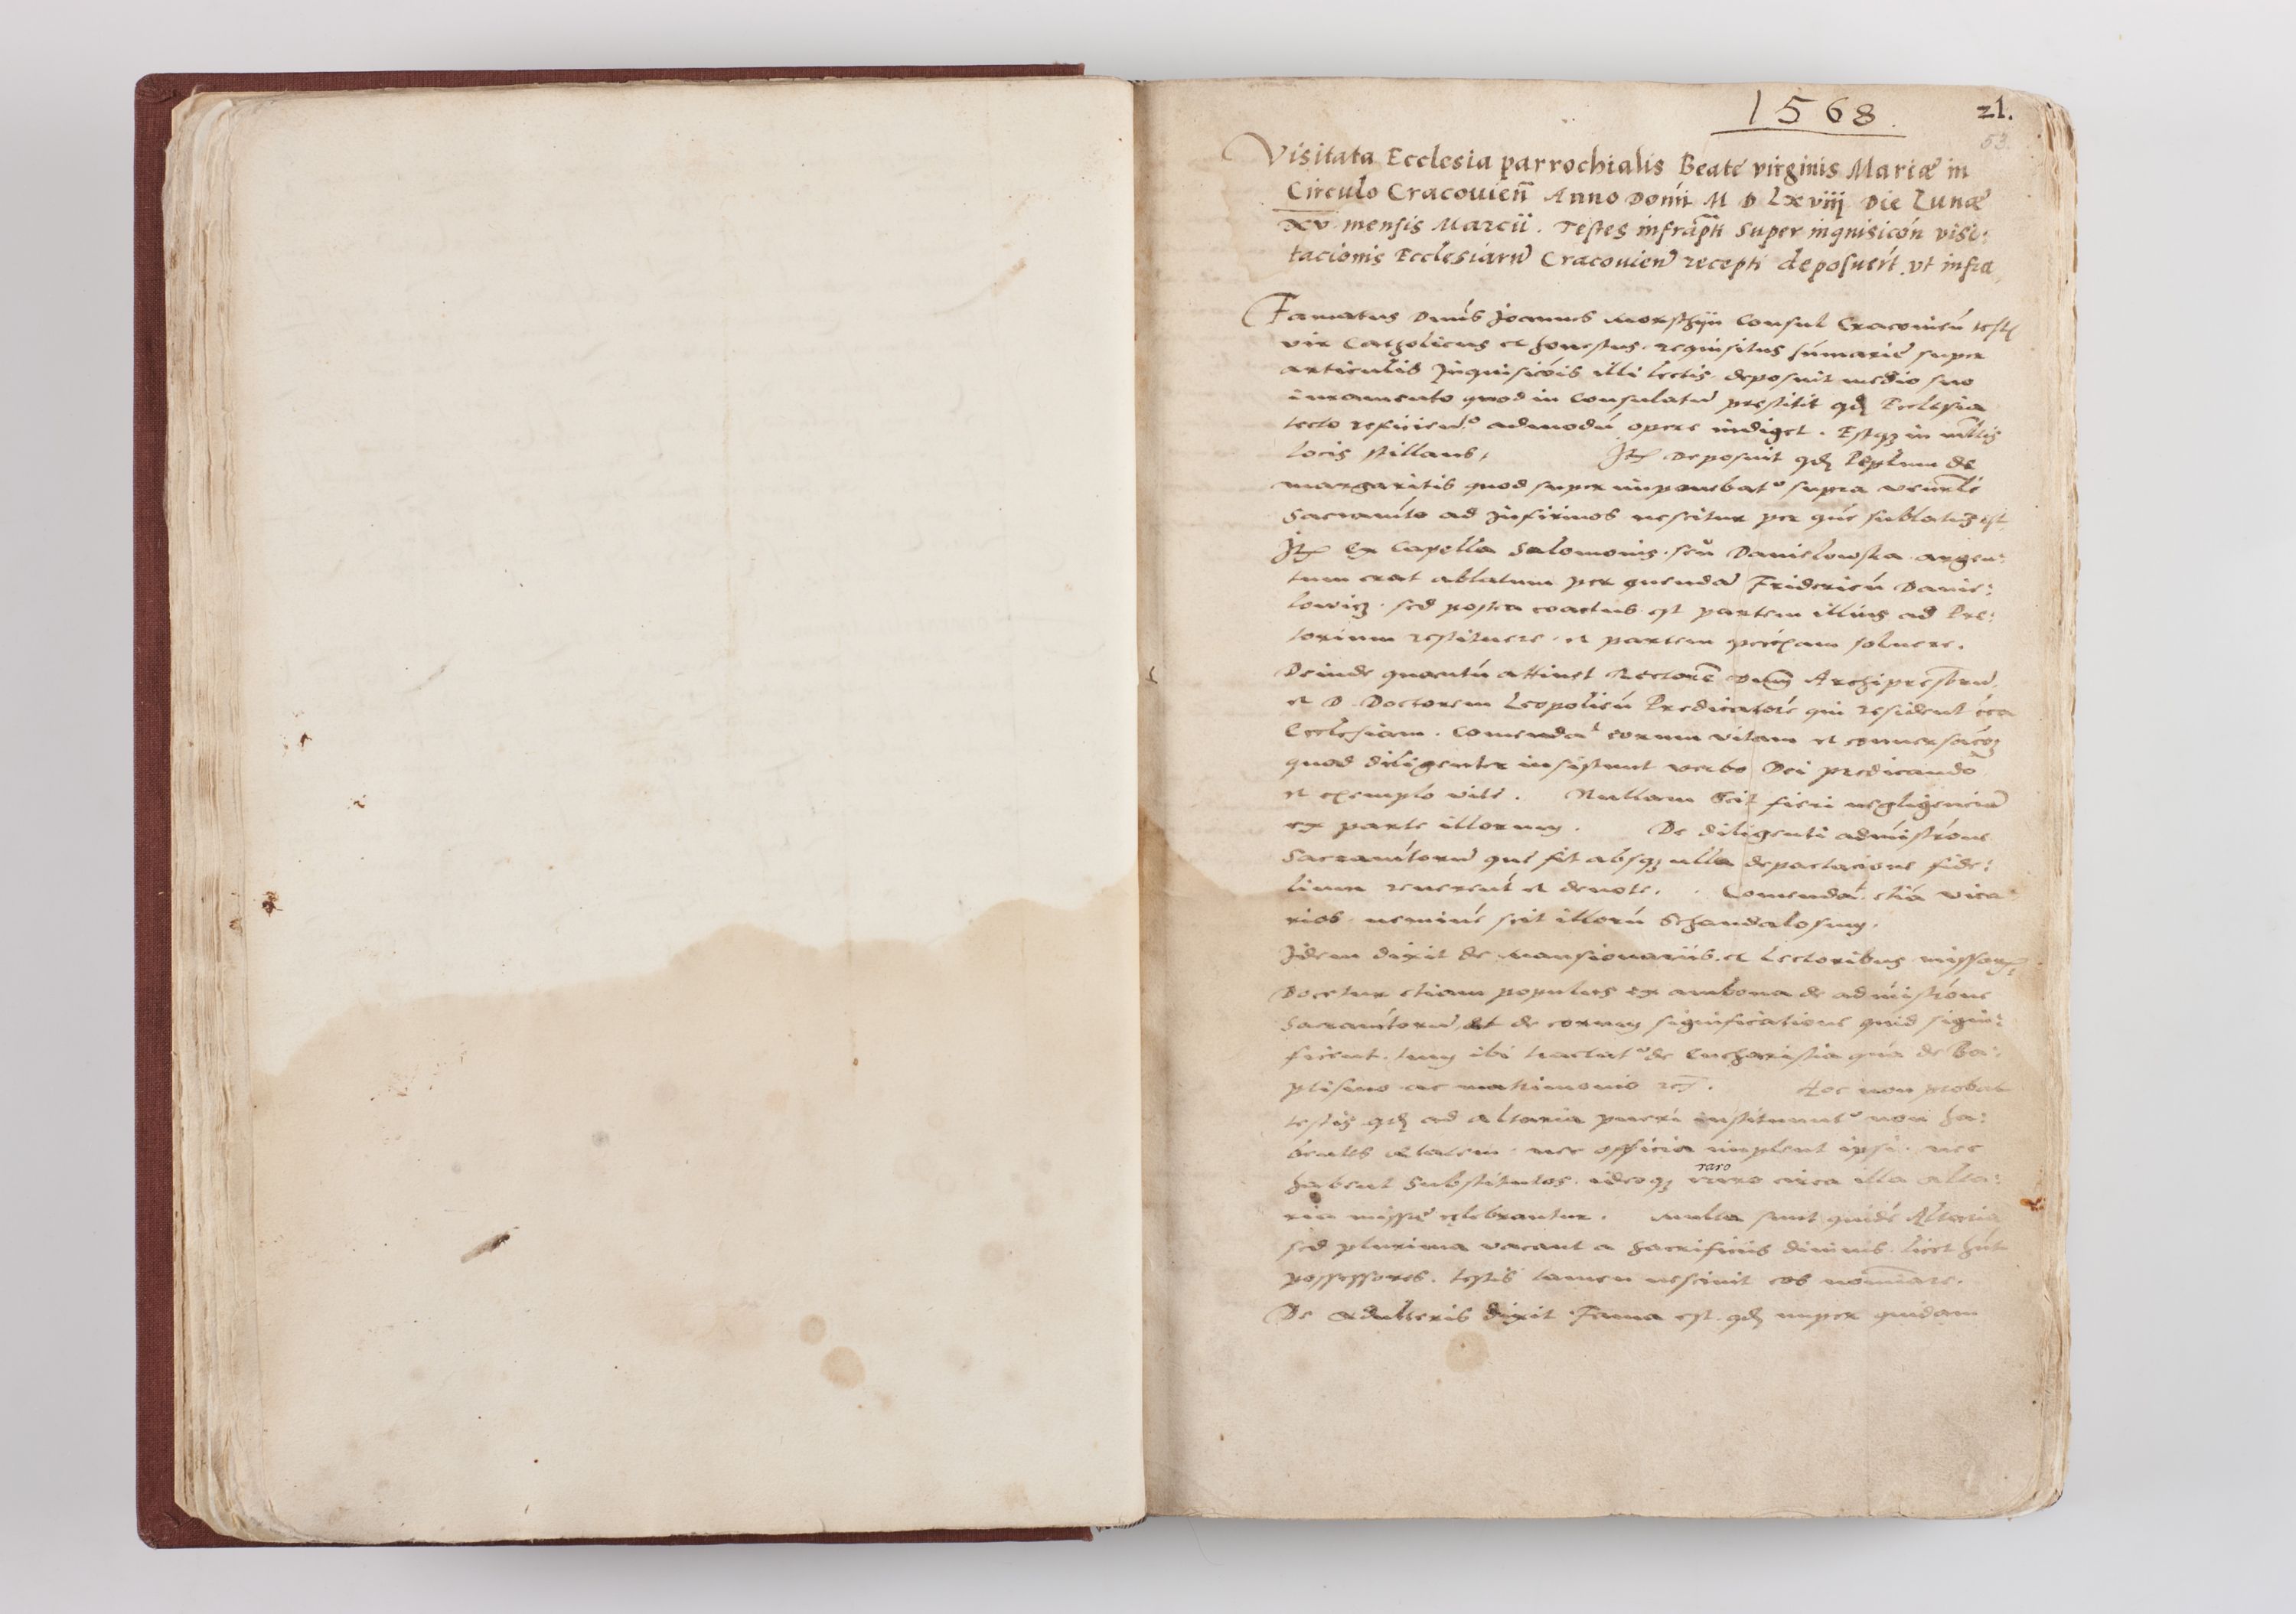 1568.
21.
53
Visitata Ecclesia parrochialis Beate virginis Mariæ in
Circulo Cracouien̄ Anno Domī M D Lxviij Die Lunæ
xv mensis Marcii. Testes infrap̄ti super inquisicōn visi:
tacionis Ecclesiarū Cracouien̄ recepti deposuer̄t vt infra
Famatus Dn̄s Joannes Morsthÿn Consul Cracouien̄ test
vir Catholicus et honestus requisitus sūmarie super
articulis Inquisicōis illi lectis deposuit medio suo
iuramento quod in Consulatu prestitit qđ Ecclesia
tecto reficien̄ admodū opere indiget. Estqз in mltis
locis stillans, Itē Deposuit qđ Peplum de
margaritis quod super imponebat᷑ supra venrle
Sacramto ad Infirmos nescitur per quē sublatuз est
Itē Ex Capella Salomonis seu Danielowska argen:
tum erat ablatum per quendā Fridericū Danie:
lowicz sed postea coactus est partem illius ad Pre:
torium restituere et partem soluere.
Deinde quantū attinet Rectorē Dnm̄ Archipresbrū
et D. Doctorem Leopolien̄ Predicatorē qui resident cca
Ecclesiam. Comendat eorum vitam et conuersacoз
quod diligenter insistunt verbo Dei predicando
et exemplo vite. Nullam scit fieri negligenciā
ex parte illorum. De diligenti admistrōne
Sacramtorū que fit absqз ulla depactacione fide:
lium reuerent et deuote. Comendat etiā vica
rios neminē scit illorū Schandalosum.
Idem dixit de Mansionariis et Lectoribus missar
Docetur etiam populus ex ambona de admistrōne
Sacramtorū et de eorum significatione quid signi:
ficent tum ibi tractat᷑ de Eucharistia quā de Ba:
ptismo ac matrimonio Hoc non probat
testis qđ ad altaria pueri instituunt᷑ non ha:
bentes ætatem nec officia implent ipsi nec
raro
habent Substitutos ideoqз raro circa illa alta:
ria missæ celebrantur. Multa sunt quidē Altaria
sed plurima vacant a Sacrificiis diuinis licet hnt
possessores. testis tamen nesciuit eos nominare.
De Adulteris dixit Fama est qđ nuper quidam